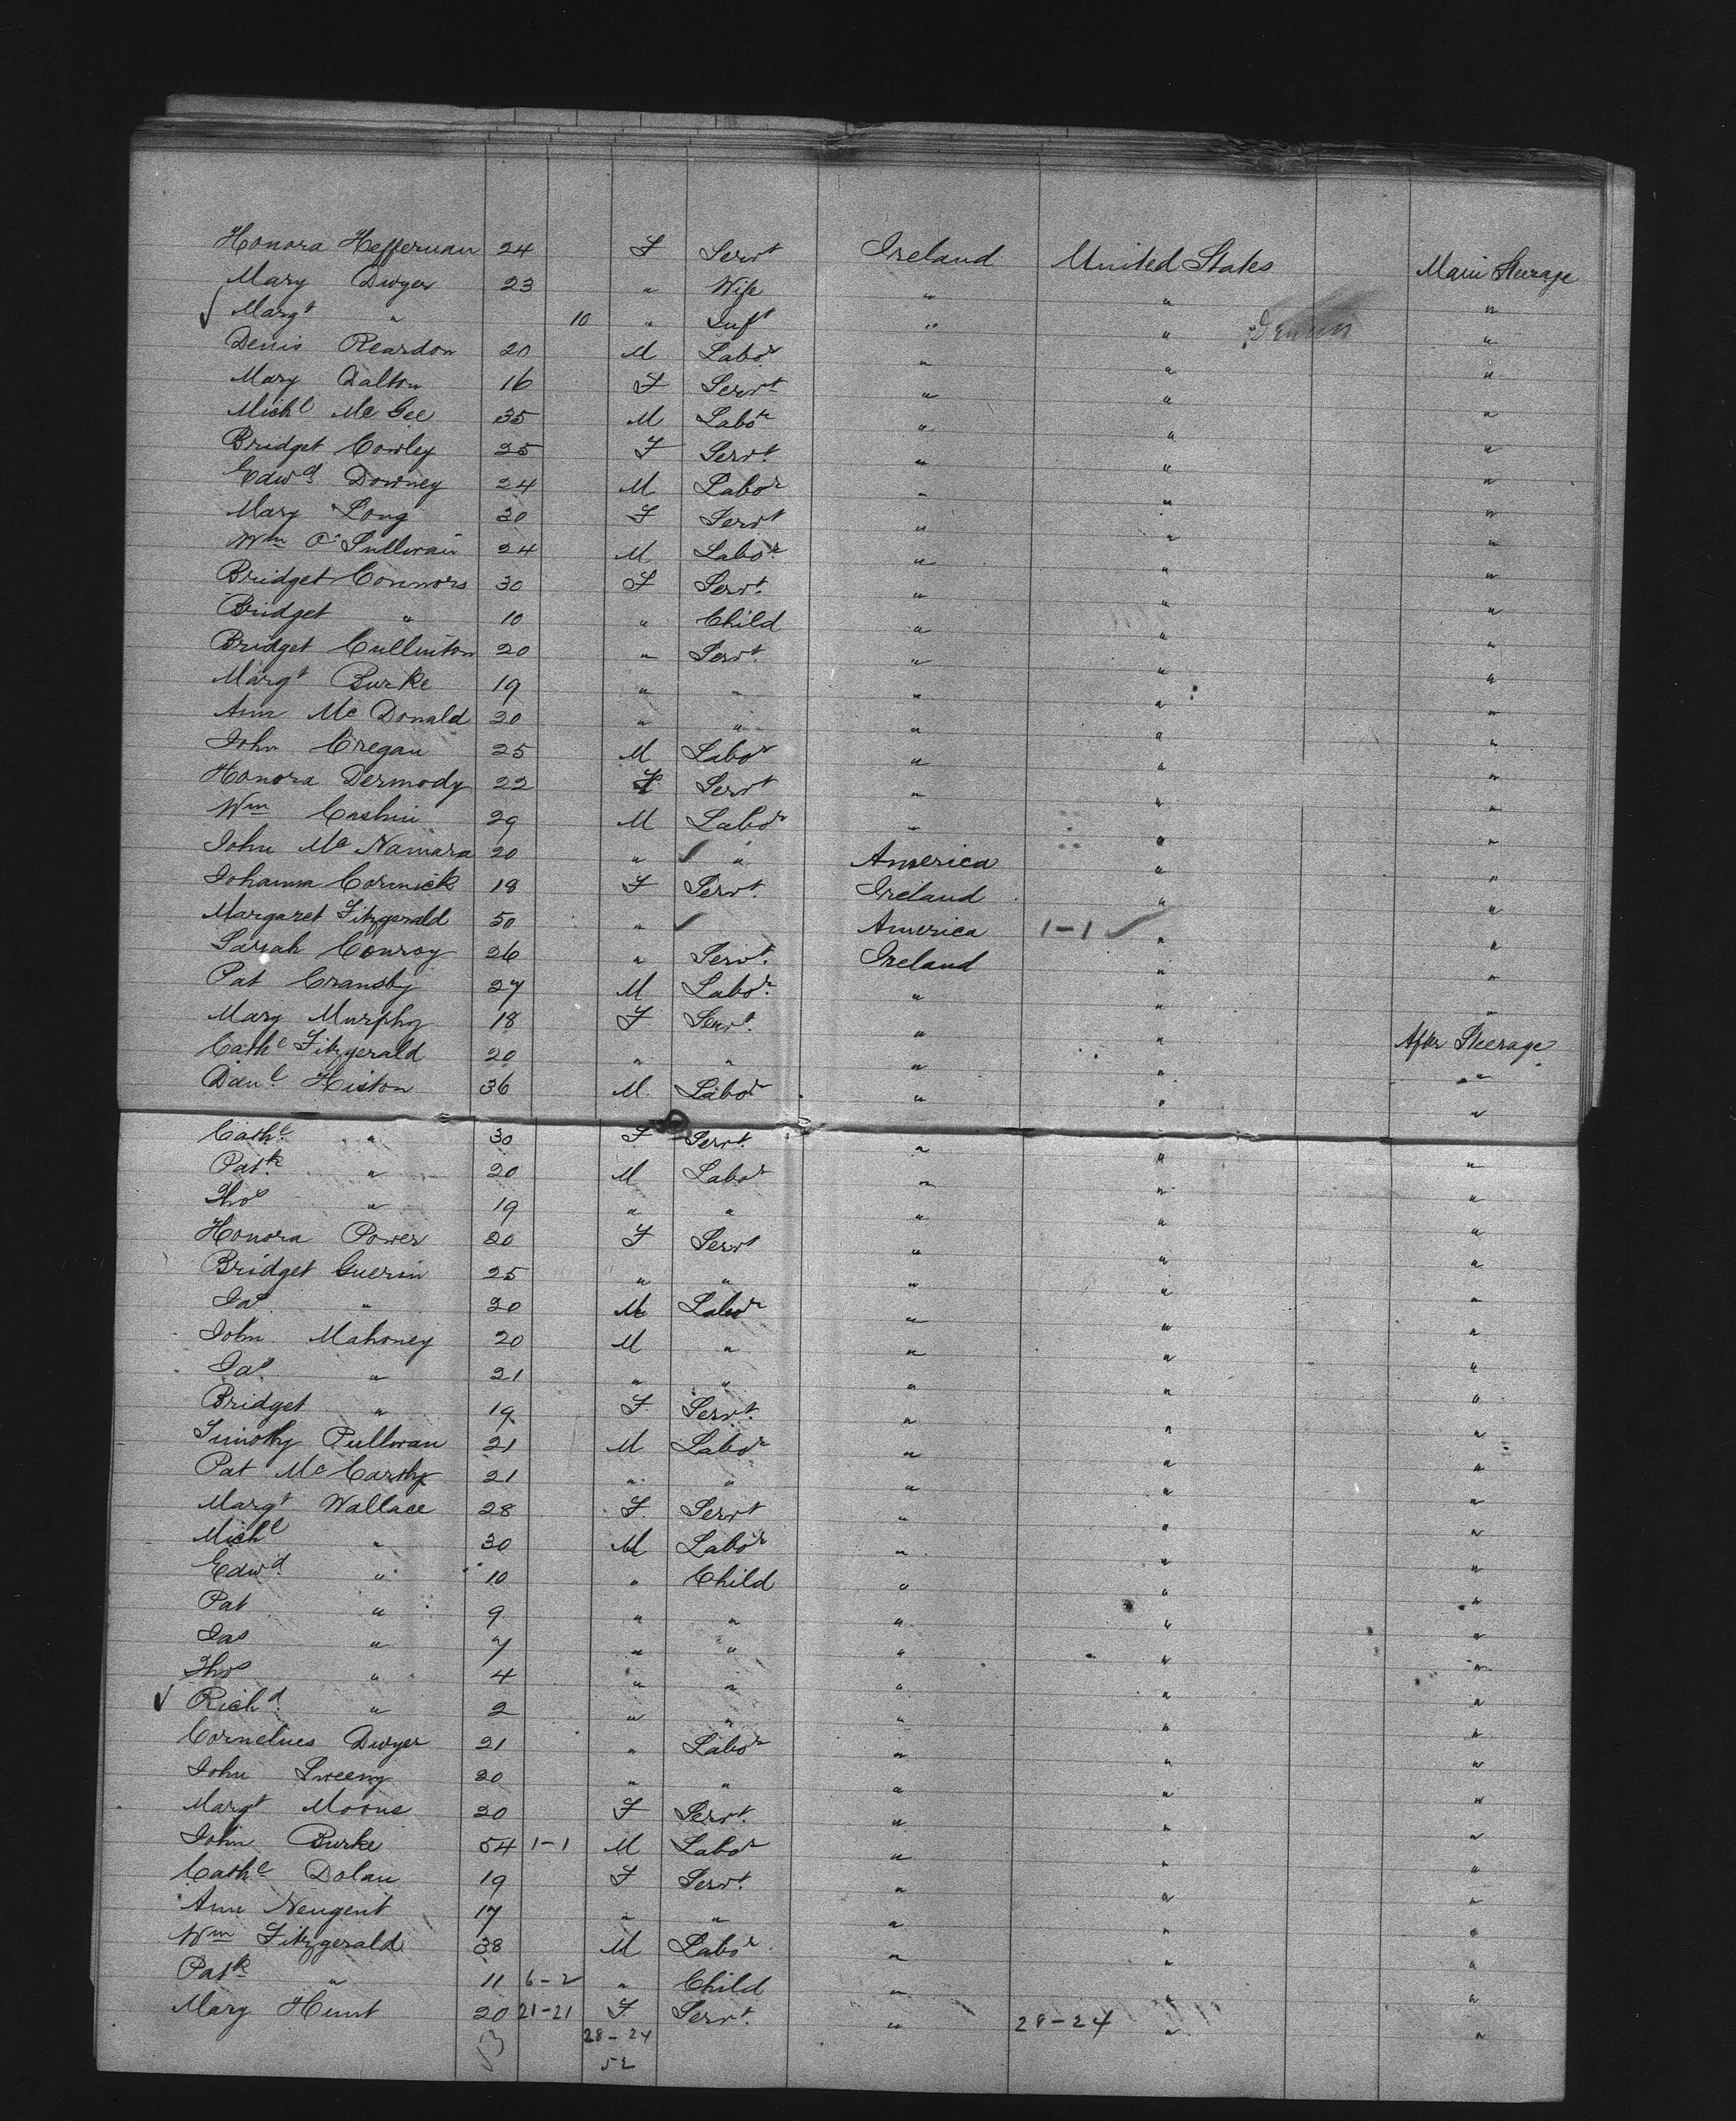 Honora Heffernan 24 F Servt Ireland United States Main Steerage
Mary Dwyer 23 " Wife " " "
✓ Margt " 10 " Inft " " "
Denis Reardon 20 M Labor " " "
Mary Dalton 16 F Servt " " "
Michl Mc Gee 35 M Labor " " "
Bridget Cowley 25 F Servt. " " "
Edwd Downey 24 M Labor " " "
Mary Long 30 F Servt " " "
Wm O'Sullivan 24 M Labor " " "
Bridget Connors 30 F Servt. " " "
Bridget " 10 " Child " " "
Bridget Cullinton 20 " Servt. " " "
Margt Burke 19 " " " " "
Ann Mc Donald 20 " " " " "
John Cregan 25 M Labor " " "
Honora Dermody 22 F Servt " " "
Wm Cashin 29 M Labor " " "
John Mc Namara 20 " ✓ " America " "
Johanna Cormick 18 F Servt. Ireland " "
Margaret Fitzgerald 50 " ✓ America 1-1 ✓ " "
Sarah Conroy 26 " Servt. Ireland " "
Pat Cransby 27 M Labor " " "
Mary Murphy 18 F Servt. " " After Steerage
Cathe Fitzgerald 20 " " " " "
Danl Histon 36 M Labor " " "
Cathe " 30 F Servt. " " "
Patk " 20 M Labor " " "
Thos " 19 " " " " "
Honora Power 20 F Servt " " "
Bridget Guerin 25 " " " " "
Jas " 20 M Labor " " "
John Mahoney 20 M " " " "
Jas " 21 " " " " "
Bridget " 19 F Servt. " " "
Timothy Sullivan 21 M Labor " " "
Pat Mc Carthy 21 " " " " "
Margt Wallace 28 F Servt " " "
Michl " 30 M Labor " " "
Edwd " 10 " Child " " "
Pat " 9 " " " " "
Jas " 7 " " " " "
Thos " 4 " " " " "
✓ Richd " 2 " " " " "
Cornelius Dwyer 21 " Labor " " "
John Sweeny 20 " " " " "
Margt Moone 20 F Servt. " " "
John Burke 54 1-1 M Labor " " "
Cathe Dolan 19 F Servt. " " "
Ann Neugent 17 " " " " "
Wm Fitzgerald 38 M Labor " " "
Patk " 11 6-2 " Child " " "
Mary Hunt 20 21-21 F Servt. " 28-24 " "
53 28-24
52